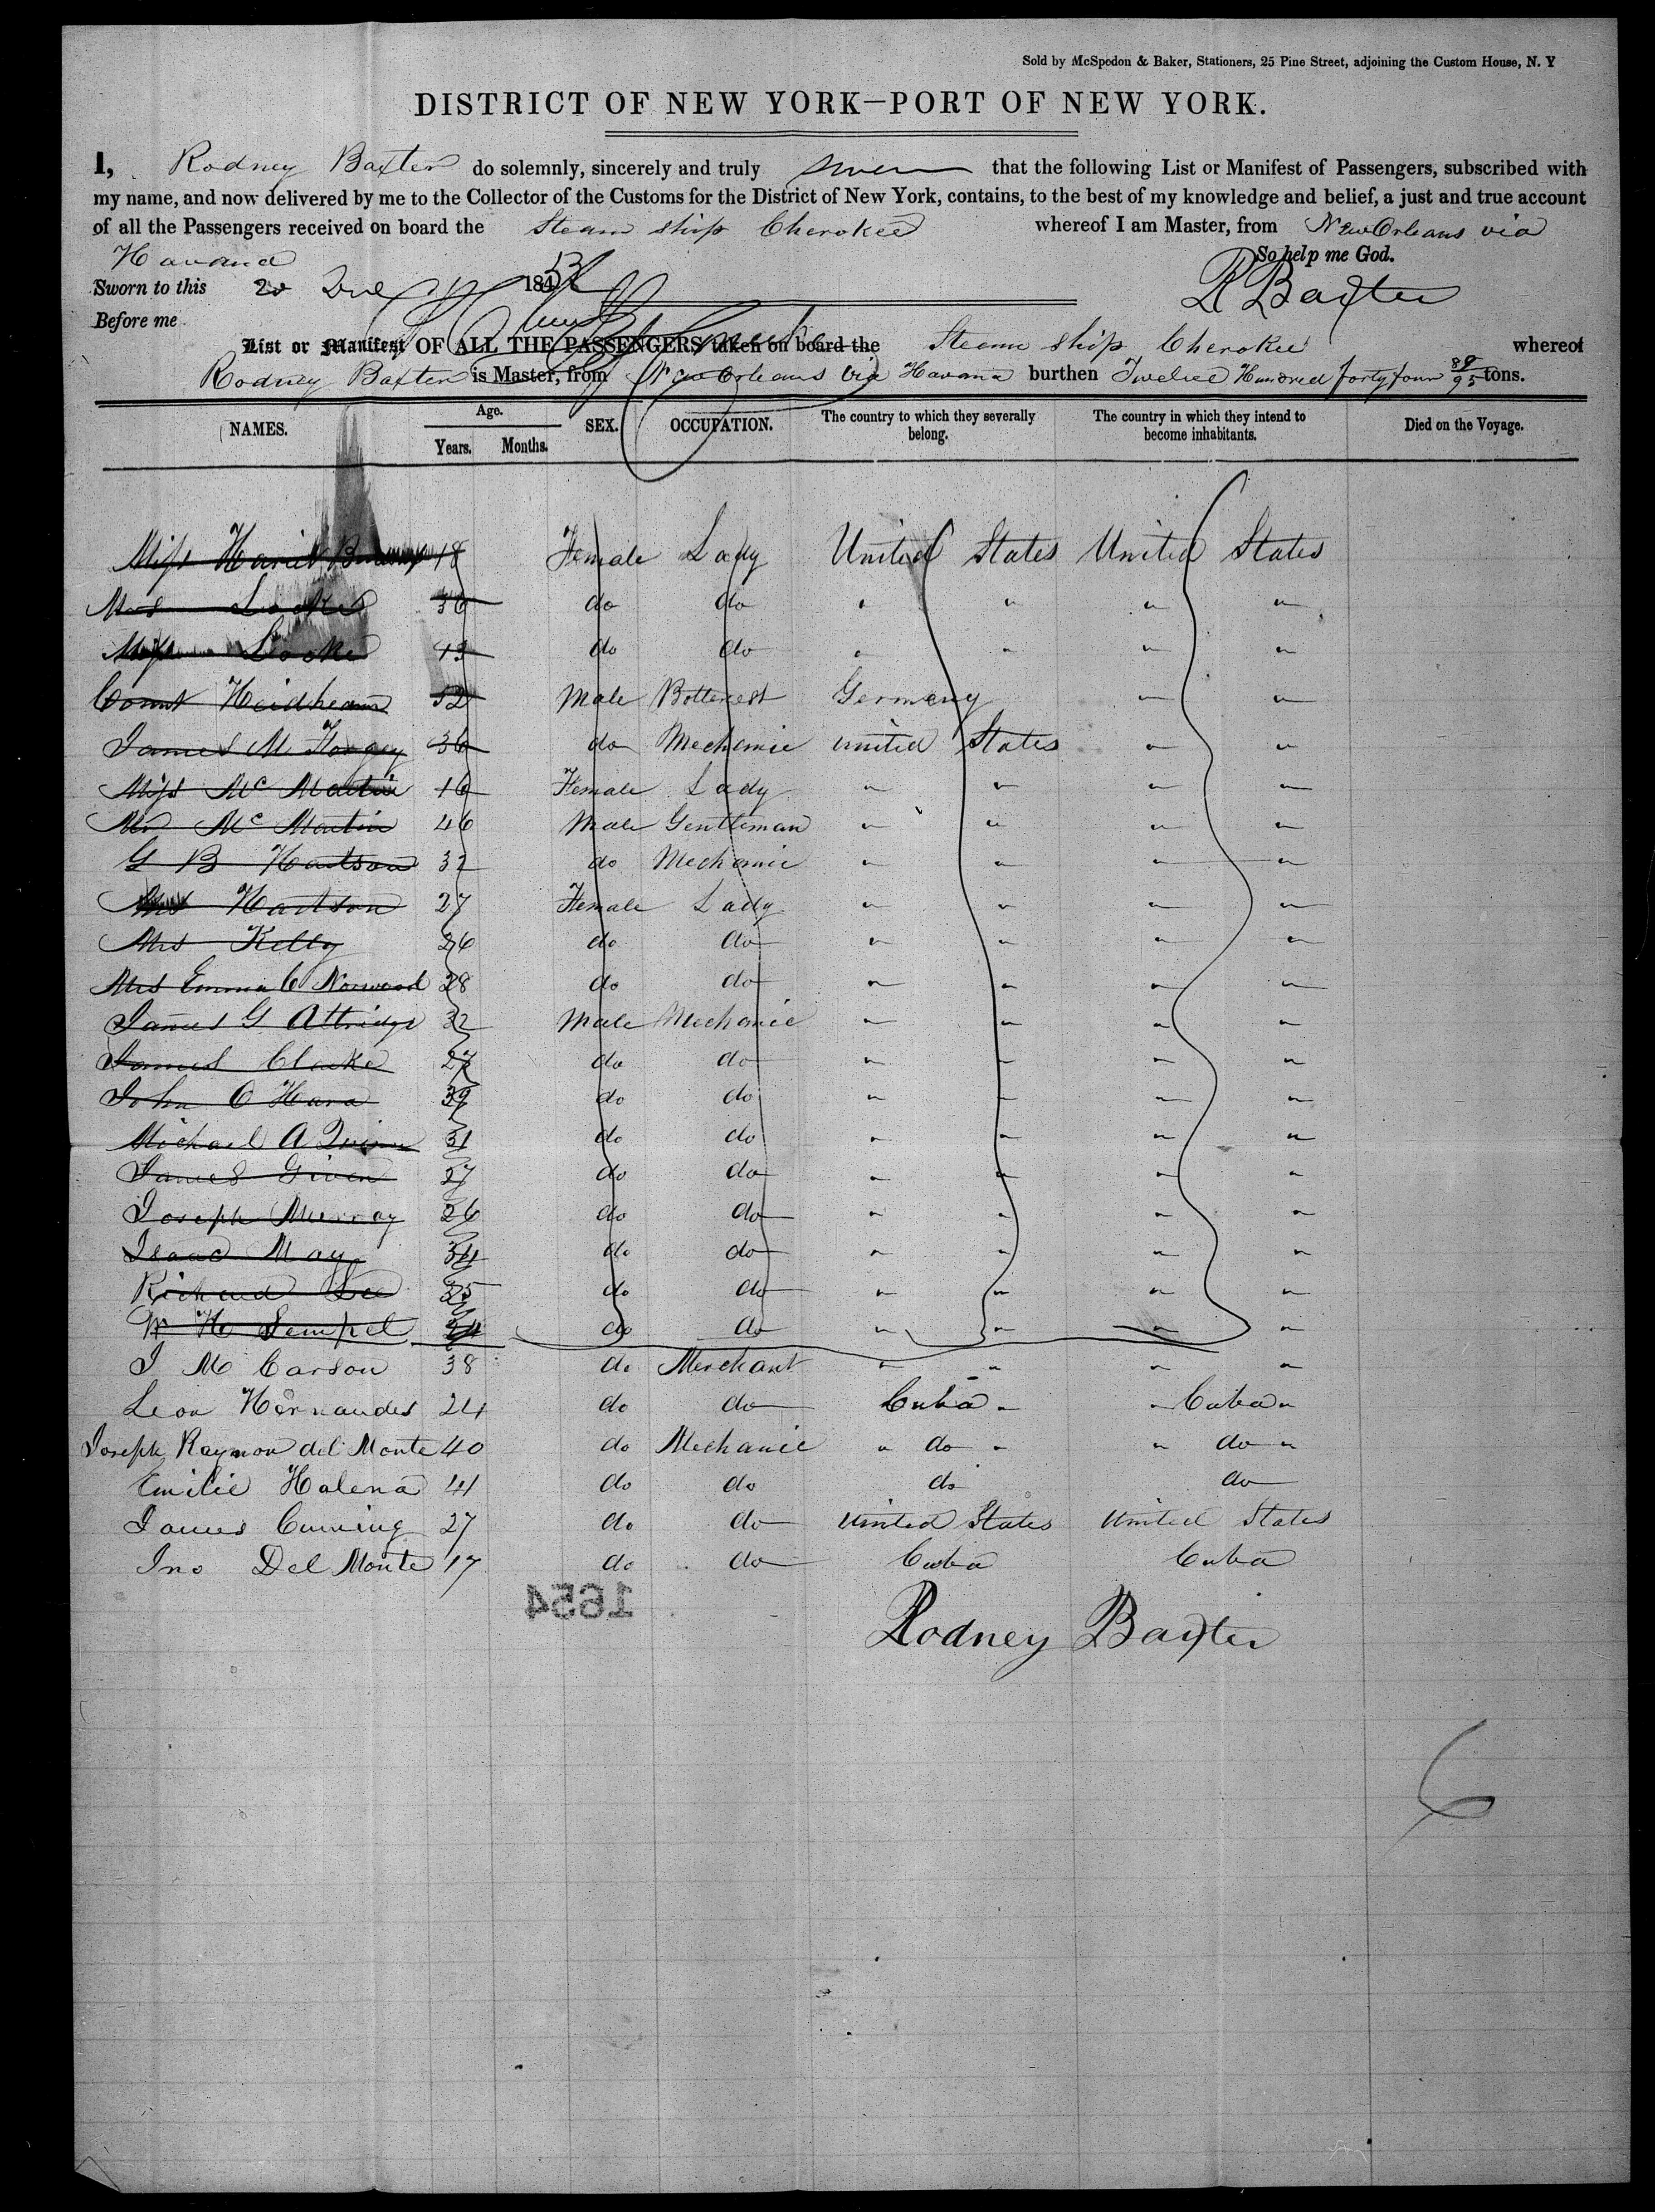 Sold by McSpedon & Baker, Stationers, 25 Pine Street, adjoining the Custom House, N. Y
DISTRICT OF NEW YORK—PORT OF NEW YORK.
I, Rodney Baxter do solemnly, sincerely and truly swear that the following List or Manifest of Passengers, subscribed with
my name, and now delivered by me to the Collector of the Customs for the District of New York, contains, to the best of my knowledge and belief, a just and true account
of all the Passengers received on board the Steam ship Cherokee whereof I am Master, from New Orleans via
Havana So help me God.
Sworn to this 20 184 R Baxter
Before me
List or Manifest OF ALL THE PASSENGERS taken on board the Steam ship Cherokee whereof
Rodney Baxter is Master, from New Orleans via Havana burthen Twelve Hundred forty four tons.
NAMES. Age. Years. Months. SEX. OCCUPATION. The country to which they severally belong. The country in which they intend to become inhabitants. Died on the Voyage.
Miss Hariet 18 Female Lady United States United States
Mrs Locke 36 do do " " " "
Miss Locke 13 do do " " " "
Count 52 Male Germany " "
James M 36 do Mechanic United States " "
Miss Mc Martin 16 Female Lady " " " "
Mr Mc Martin 46 Male Gentleman " " " "
G B Hartson 32 do Mechanic " " " "
Mrs Hartson 27 Female Lady " " " "
Mrs Kelly 26 do do " " " "
Mrs Emma C Norwood 28 do do " " " "
James G Attridge 32 Male Mechanic " " " "
James Clarke 27 do do " " " "
John O Hara 39 do do " " " "
Michael A Quinn 31 do do " " " "
James Given 27 do do " " " "
Joseph Murray 26 do do " " " "
Isaac May 34 do do " " " "
Richard Lee 35 do do " " " "
Wm H Sempel 34 do do " " " "
J M Carson 38 do Merchant " " " "
Leon Hernandes 24 do do Cuba " " Cuba "
Joseph Raymon del Monte 40 do Mechanic " do " " do "
Emilie Halena 41 do do do do
James Cuming 27 do do United States United States
Jno Del Monte 17 do do Cuba Cuba
1654
Rodney Baxter
6